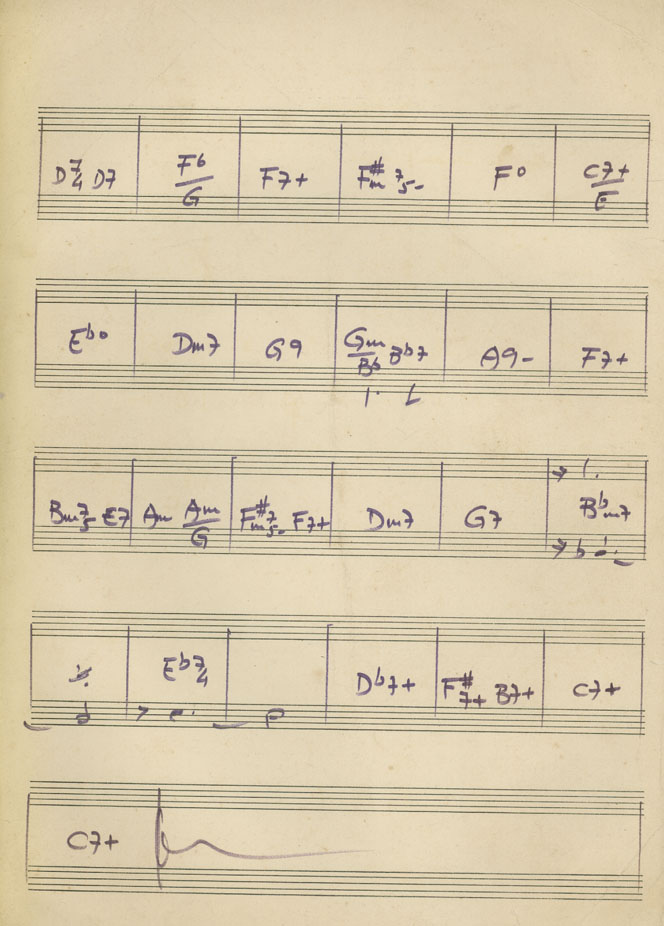 D7/4 D7 F6/G F7+ F#m7/5- F° C7+/E
Eb° Dm7 G9 Gm/Bb Bb7 A9- F7+
Bm7/5- E7 Am Am/G F#m7/5- F7+ Dm7 G7 Bbm7
Eb7/4 Db7+ F#7+ B7+ C7+
C7+